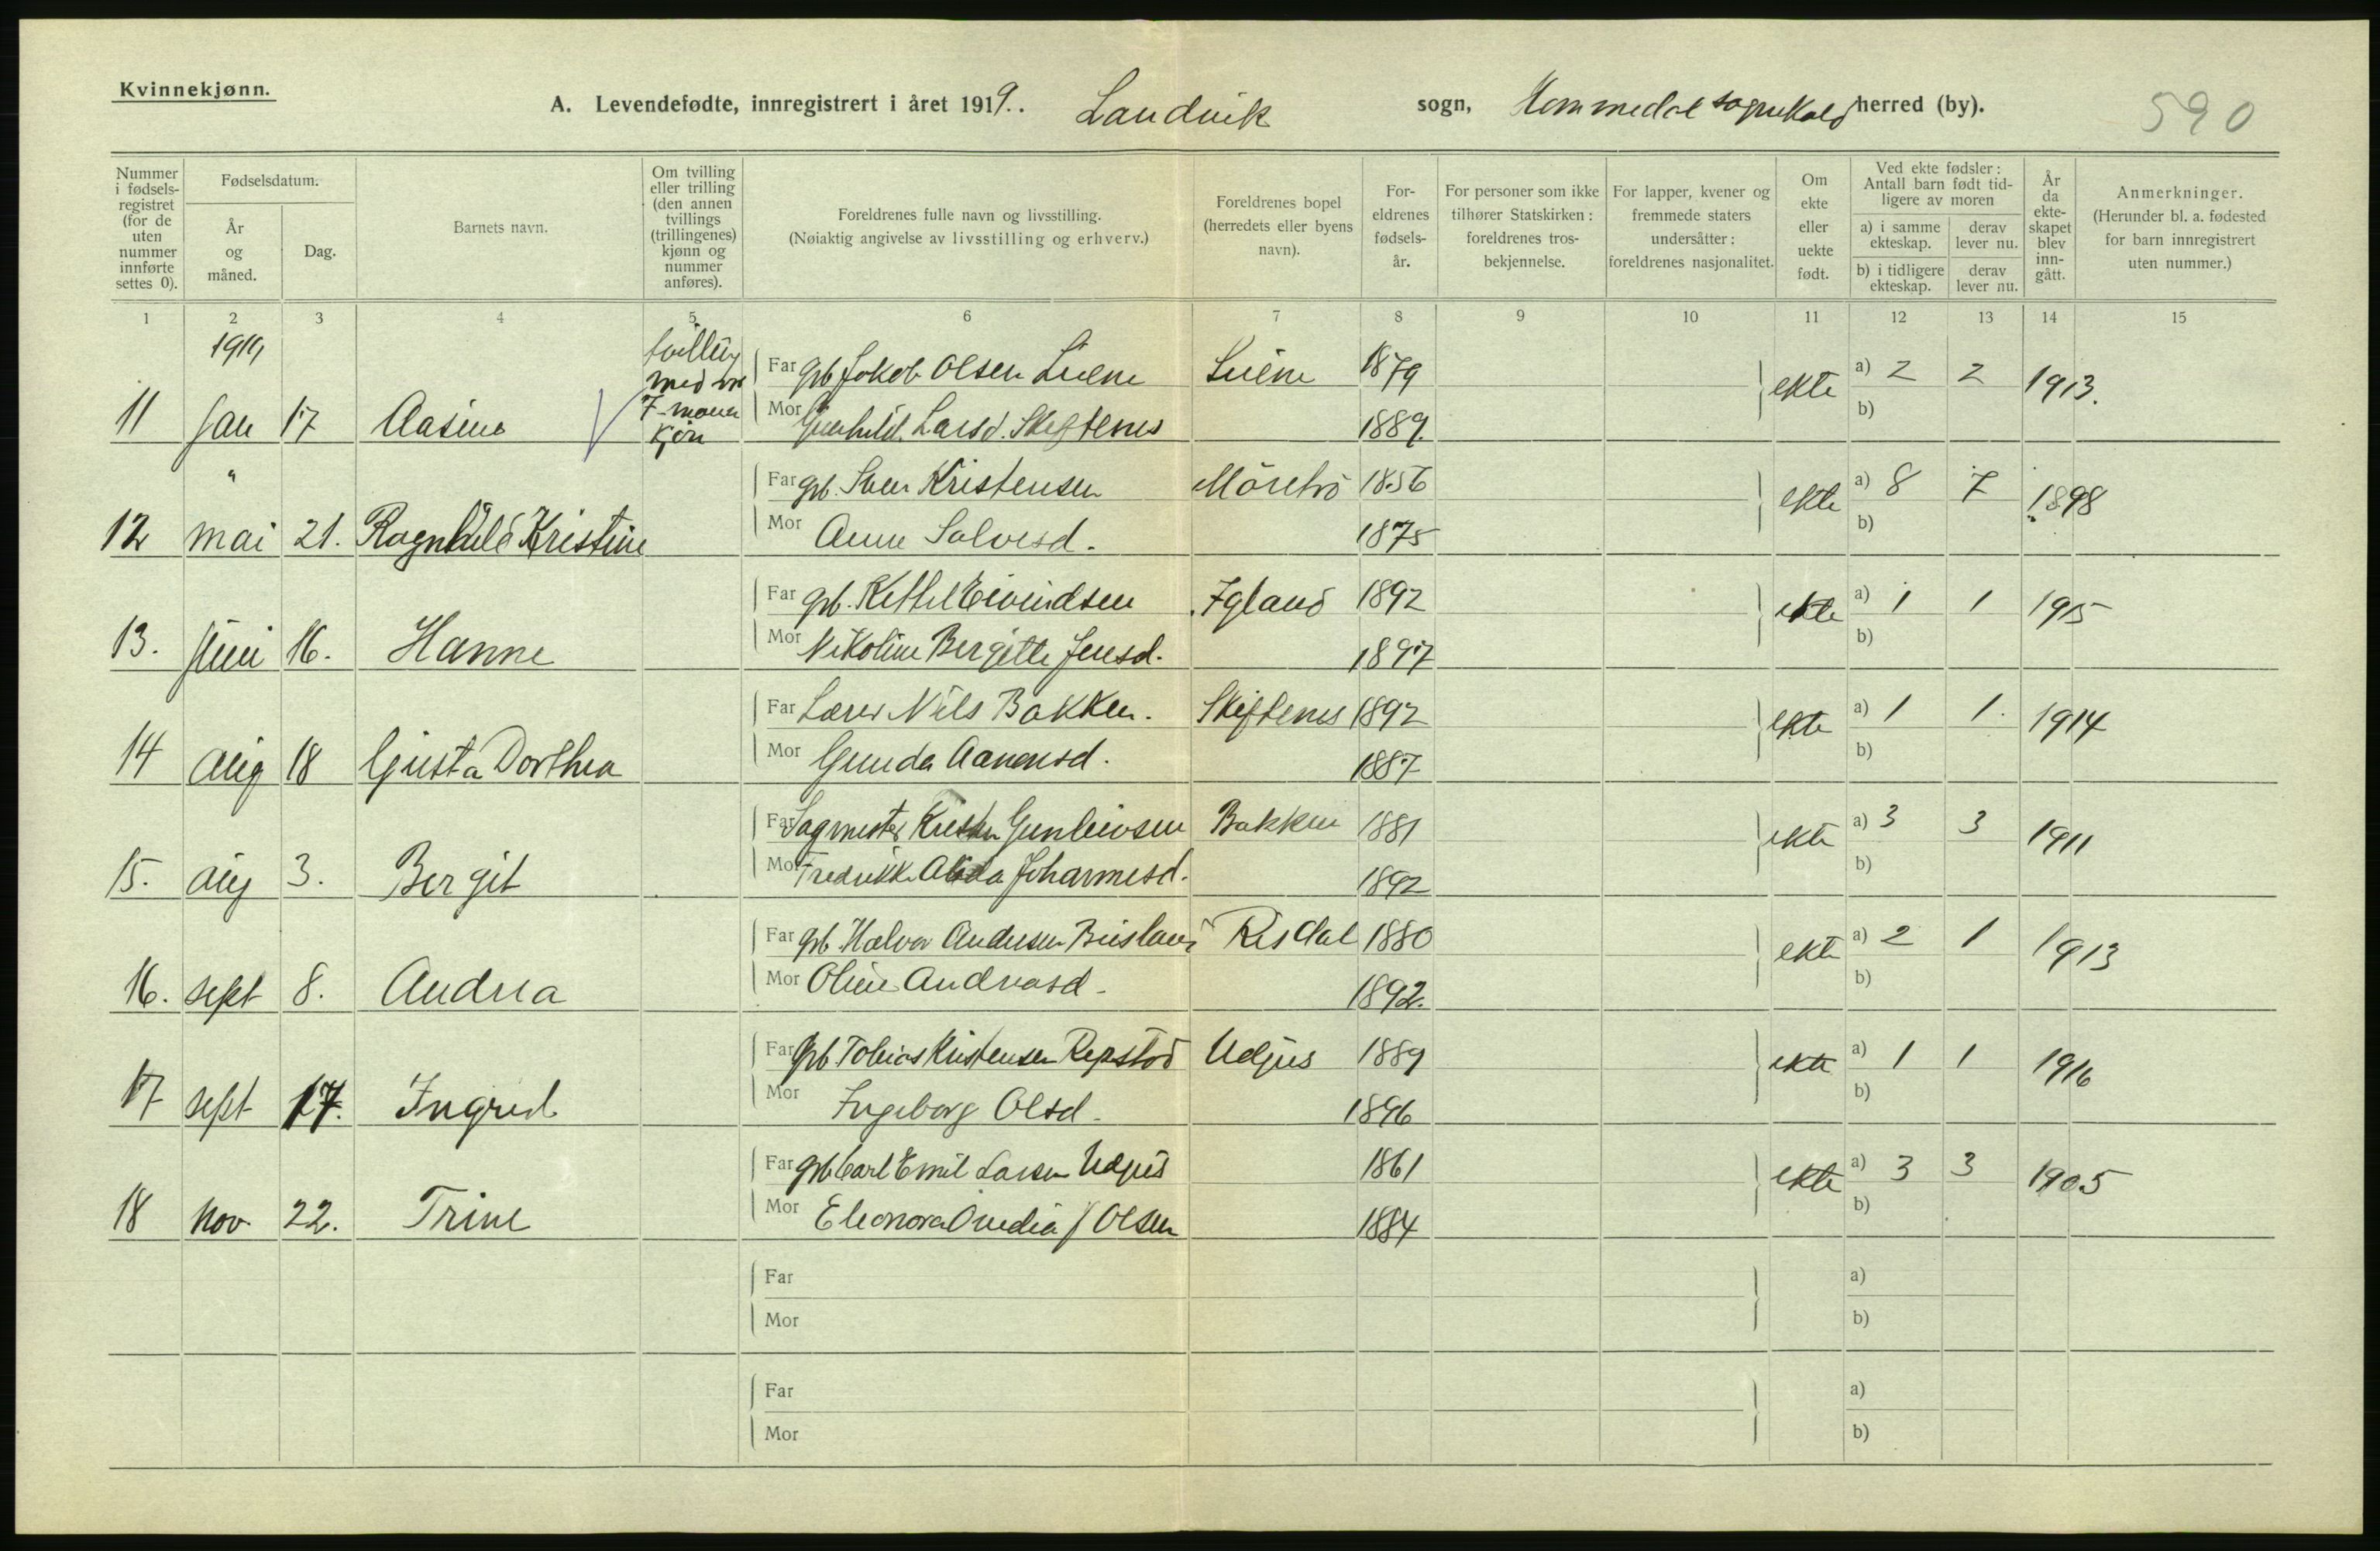 Kvinnekjønn.
A. Levendefødte, innregistrert i året 1919. Landvik sogn, Hommedal sognekald herred (by). 590
Nummer i fødsels-registret (for de uten nummer innførte settes 0).
Fødselsdatum.
År og måned.
Dag.
Barnets navn.
Om tvilling eller trilling (den annen tvillings (trillingenes) kjønn og nummer anføres).
Foreldrenes fulle navn og livsstilling.
(Nøiaktig angivelse av livsstilling og erhverv.)
Foreldrenes bopel (herredets eller byens navn).
For-eldrenes fødsels-år.
For personer som ikke tilhører Statskirken: foreldrenes tros-bekjennelse.
For lapper, kvener og fremmede staters undersåtter: foreldrenes nasjonalitet.
Om ekte eller uekte født.
Ved ekte fødsler: Antall barn født tid-ligere av moren
a) i samme ekteskap.
derav lever nu.
b) i tidligere ekteskap.
derav lever nu.
År da ekte-skapet blev inn-gått.
Anmerkninger.
(Herunder bl. a. fødested for barn innregistrert uten nummer.)
1 2 3 4 5 6 7 8 9 10 11 12 13 14 15
1919
tvilling med nr 7 Far grb Jokob Olsen Liene Liene 1879 ekte a) 2 2 1913.
11 Jan 17 Aasine kjön Mor Gunhild Larsd. Skiftenes 1889. b)
" Far grb. Sven Kristensen 1856 ekte a) 8 7 1898
12 mai 21. Ragnhild Kristine Mor Anne Salvesd. 1875 b)
Far grb. Kettel Eivindsen Igland 1892 ekte a) 1 1 1915
13. Juni 16. Hanne Mor Nikoline Bergitte Jensd. 1897 b)
Far Lærer Nils Bakken. Skiftenes 1892 ekte a) 1 1. 1914
14 Aug 18 Gusta Dorthea Mor Gunda Aanensd. 1887 b)
Far Sagmester Gunleivsen Bakken 1881 ekte a) 3 3 1911
15. Aug 3. Bergit Mor Fredrikke Alida Johannesd. 1892 b)
Far grb. Halvor Andersen Risdal 1880 ekte a) 2 1 1913
16. sept 8. Andrea Mor Oline Andreasd. 1892. b)
Far grb Tobias Kristensen Repstad Udjus 1889 ekte a) 1 1 1916
17 sept 17. Ingrid Mor Ingeborg Olsd. 1896 b)
Far grb Carl Emil Larsen Udjus 1861 ekte a) 3 3 1905
18 nov. 22. Trine Mor Eleonora Ovedia J Olsen 1884 b)
Far a)
Mor b)
Far a)
Mor b)